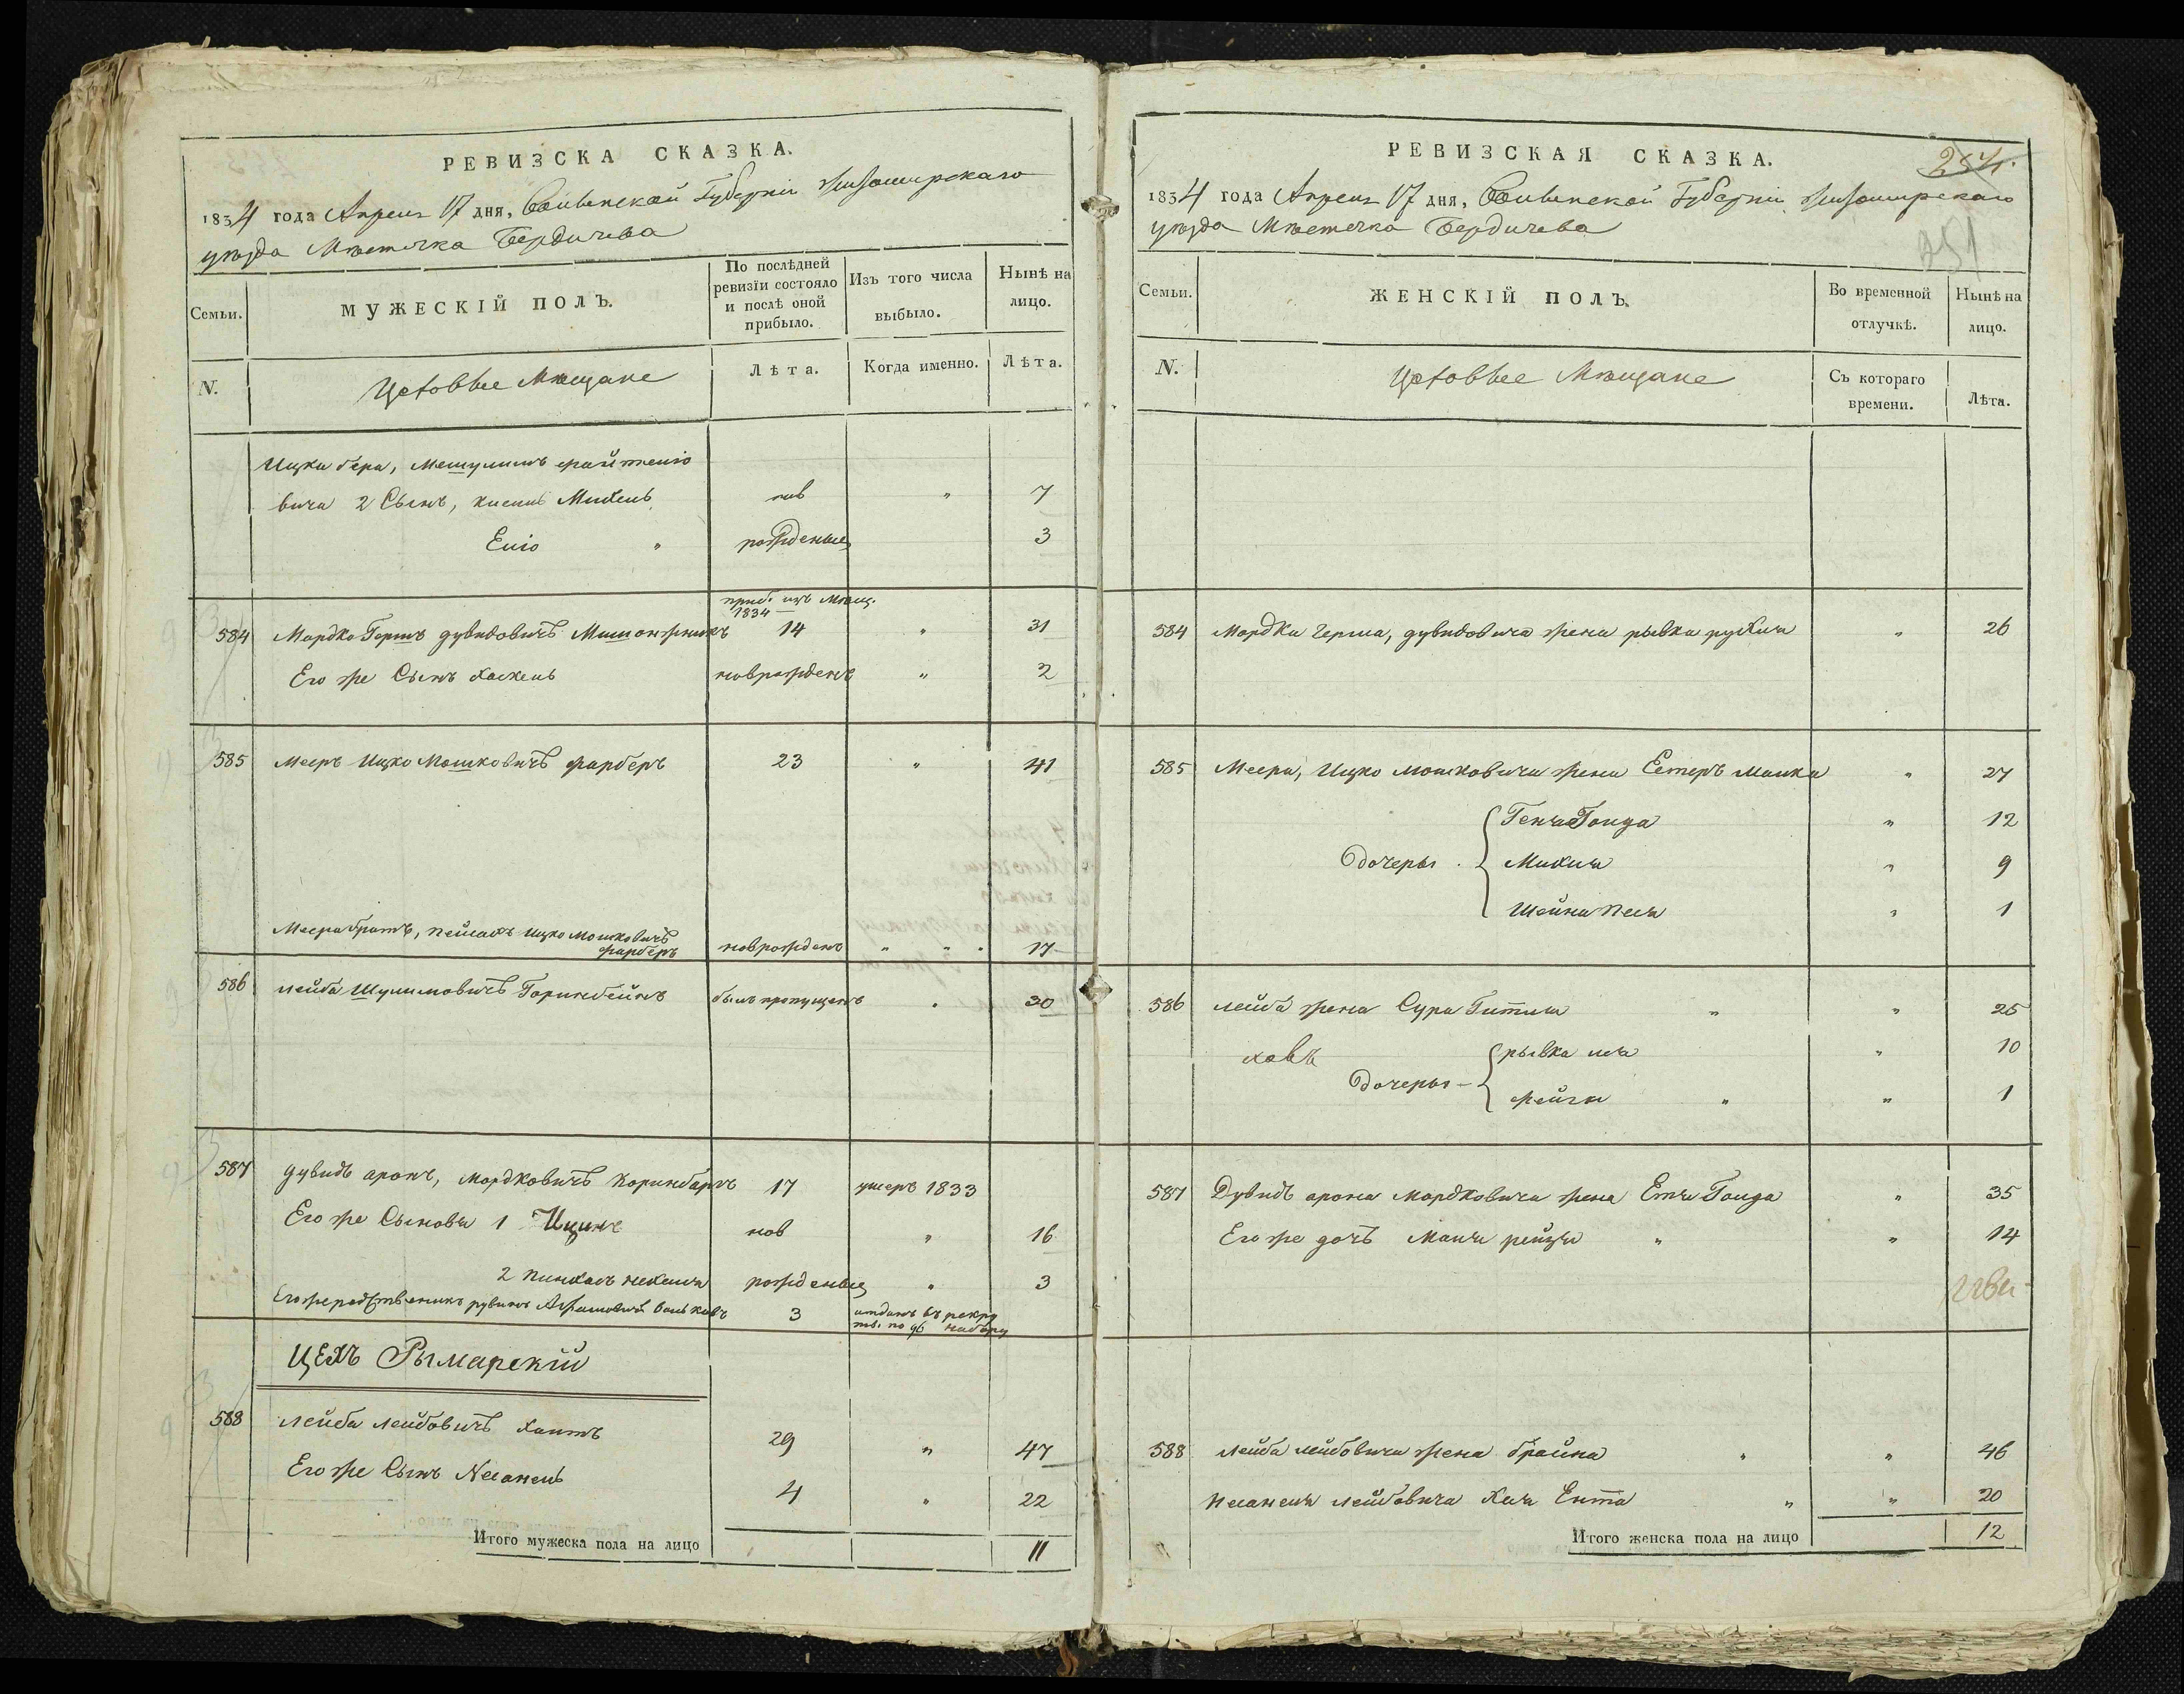 РЕВИЗСКА СКАЗКА.
1834 года Апреля 17 дня, Волынской Губерніи Житомирскаго
уѣзда Мѣстечка Бердичева
Семьи.
МУЖЕСКІЙ ПОЛЪ.
По послѣдней ревизіи состояло и послѣ оной прибыло.
Изъ того числа выбыло.
Нынѣ на лицо.
N.
Цеховые Мѣщане
Лѣта.
Когда именно.
Лѣта.
Ицка бера, Мешулимъ
вича 2 Сынъ, Михель нов " 7
Еліо " рожденные 3
приб. изъ Мѣщ.
1834
584 Мордко Гершъ дувидовичъ 14 " 31
Его же Сынъ Хаскель новрожденъ " 2
585 Мееръ Ицко Мошковичъ фарберъ 23 " 41
Меера братъ, пейсахъ Ицко Мошковичъ
фарберъ новрожденъ " " " 17
586 лейба Шулимовичъ Горинбейнъ былъ пропущенъ " 30
587 дувидъ аронъ, Мордковичъ Коринбаръ 17 умеръ 1833
Его же Сыновья 1 Ицикъ нов " 16
2 пинхасъ нехемія рожденные " 3
Его же родственникъ рувинъ 3 отданъ въ рекру
ты по 96 набору
Цехъ Рымарскій
588 лейба лейбовичъ 29 " 47
Его же Сынъ Несанель 4 " 22
Итого мужеска пола на лицо 11
РЕВИЗСКАЯ СКАЗКА.
254.
1834 года Апреля 17 дня, Волынской Губерніи Житомирскаго
уѣзда Мѣстечка Бердичева
251
Семьи.
ЖЕНСКІЙ ПОЛЪ.
Во временной отлучкѣ.
Нынѣ на лицо.
N.
Цеховые Мѣщане
Съ котораго времени.
Лѣта.
584 Мордка герша, дувидовича жена рывка рухля " 26
585 Меера, Ицко мошковича жена Естеръ малка " 27
Геня Голда " 12
Дочеры Михля " 9
Шейна песя " 1
586 лейба жена Сура Гитля " " 25
рывка лея " 10
Дочеры фейга " " 1
587 Дувидъ арона мордковича жена Етя Голда " 35
Его же дочъ Маня рейзя " " 14
588 лейба лейбовича жена брайна " " 46
Несанеля лейбовича Хая Ента " " 20
Итого женска пола на лицо 12